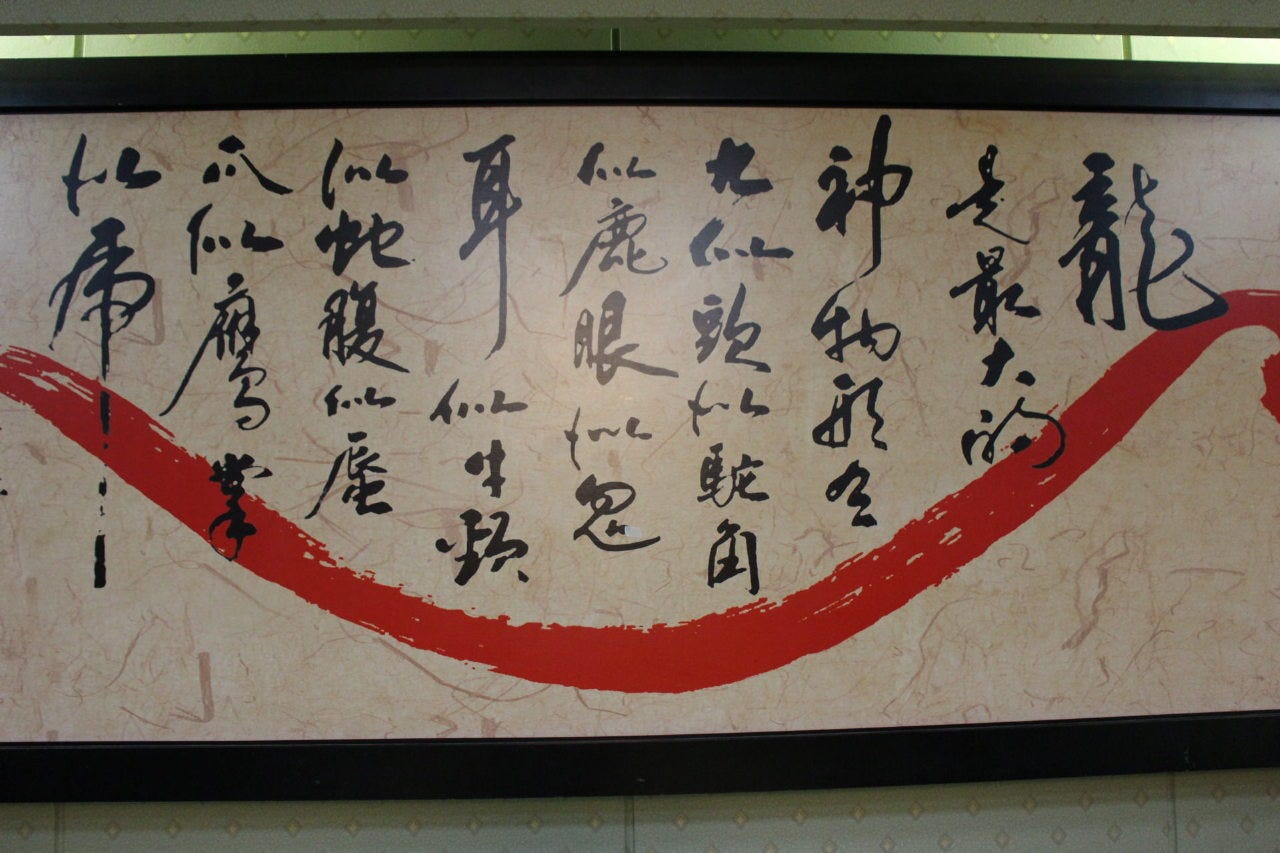 龍
是最大的
神物形有
九似頭似駝角
似鹿眼似忽
耳似牛頸
似蛇腹似蜃
爪似鷹掌
似虎